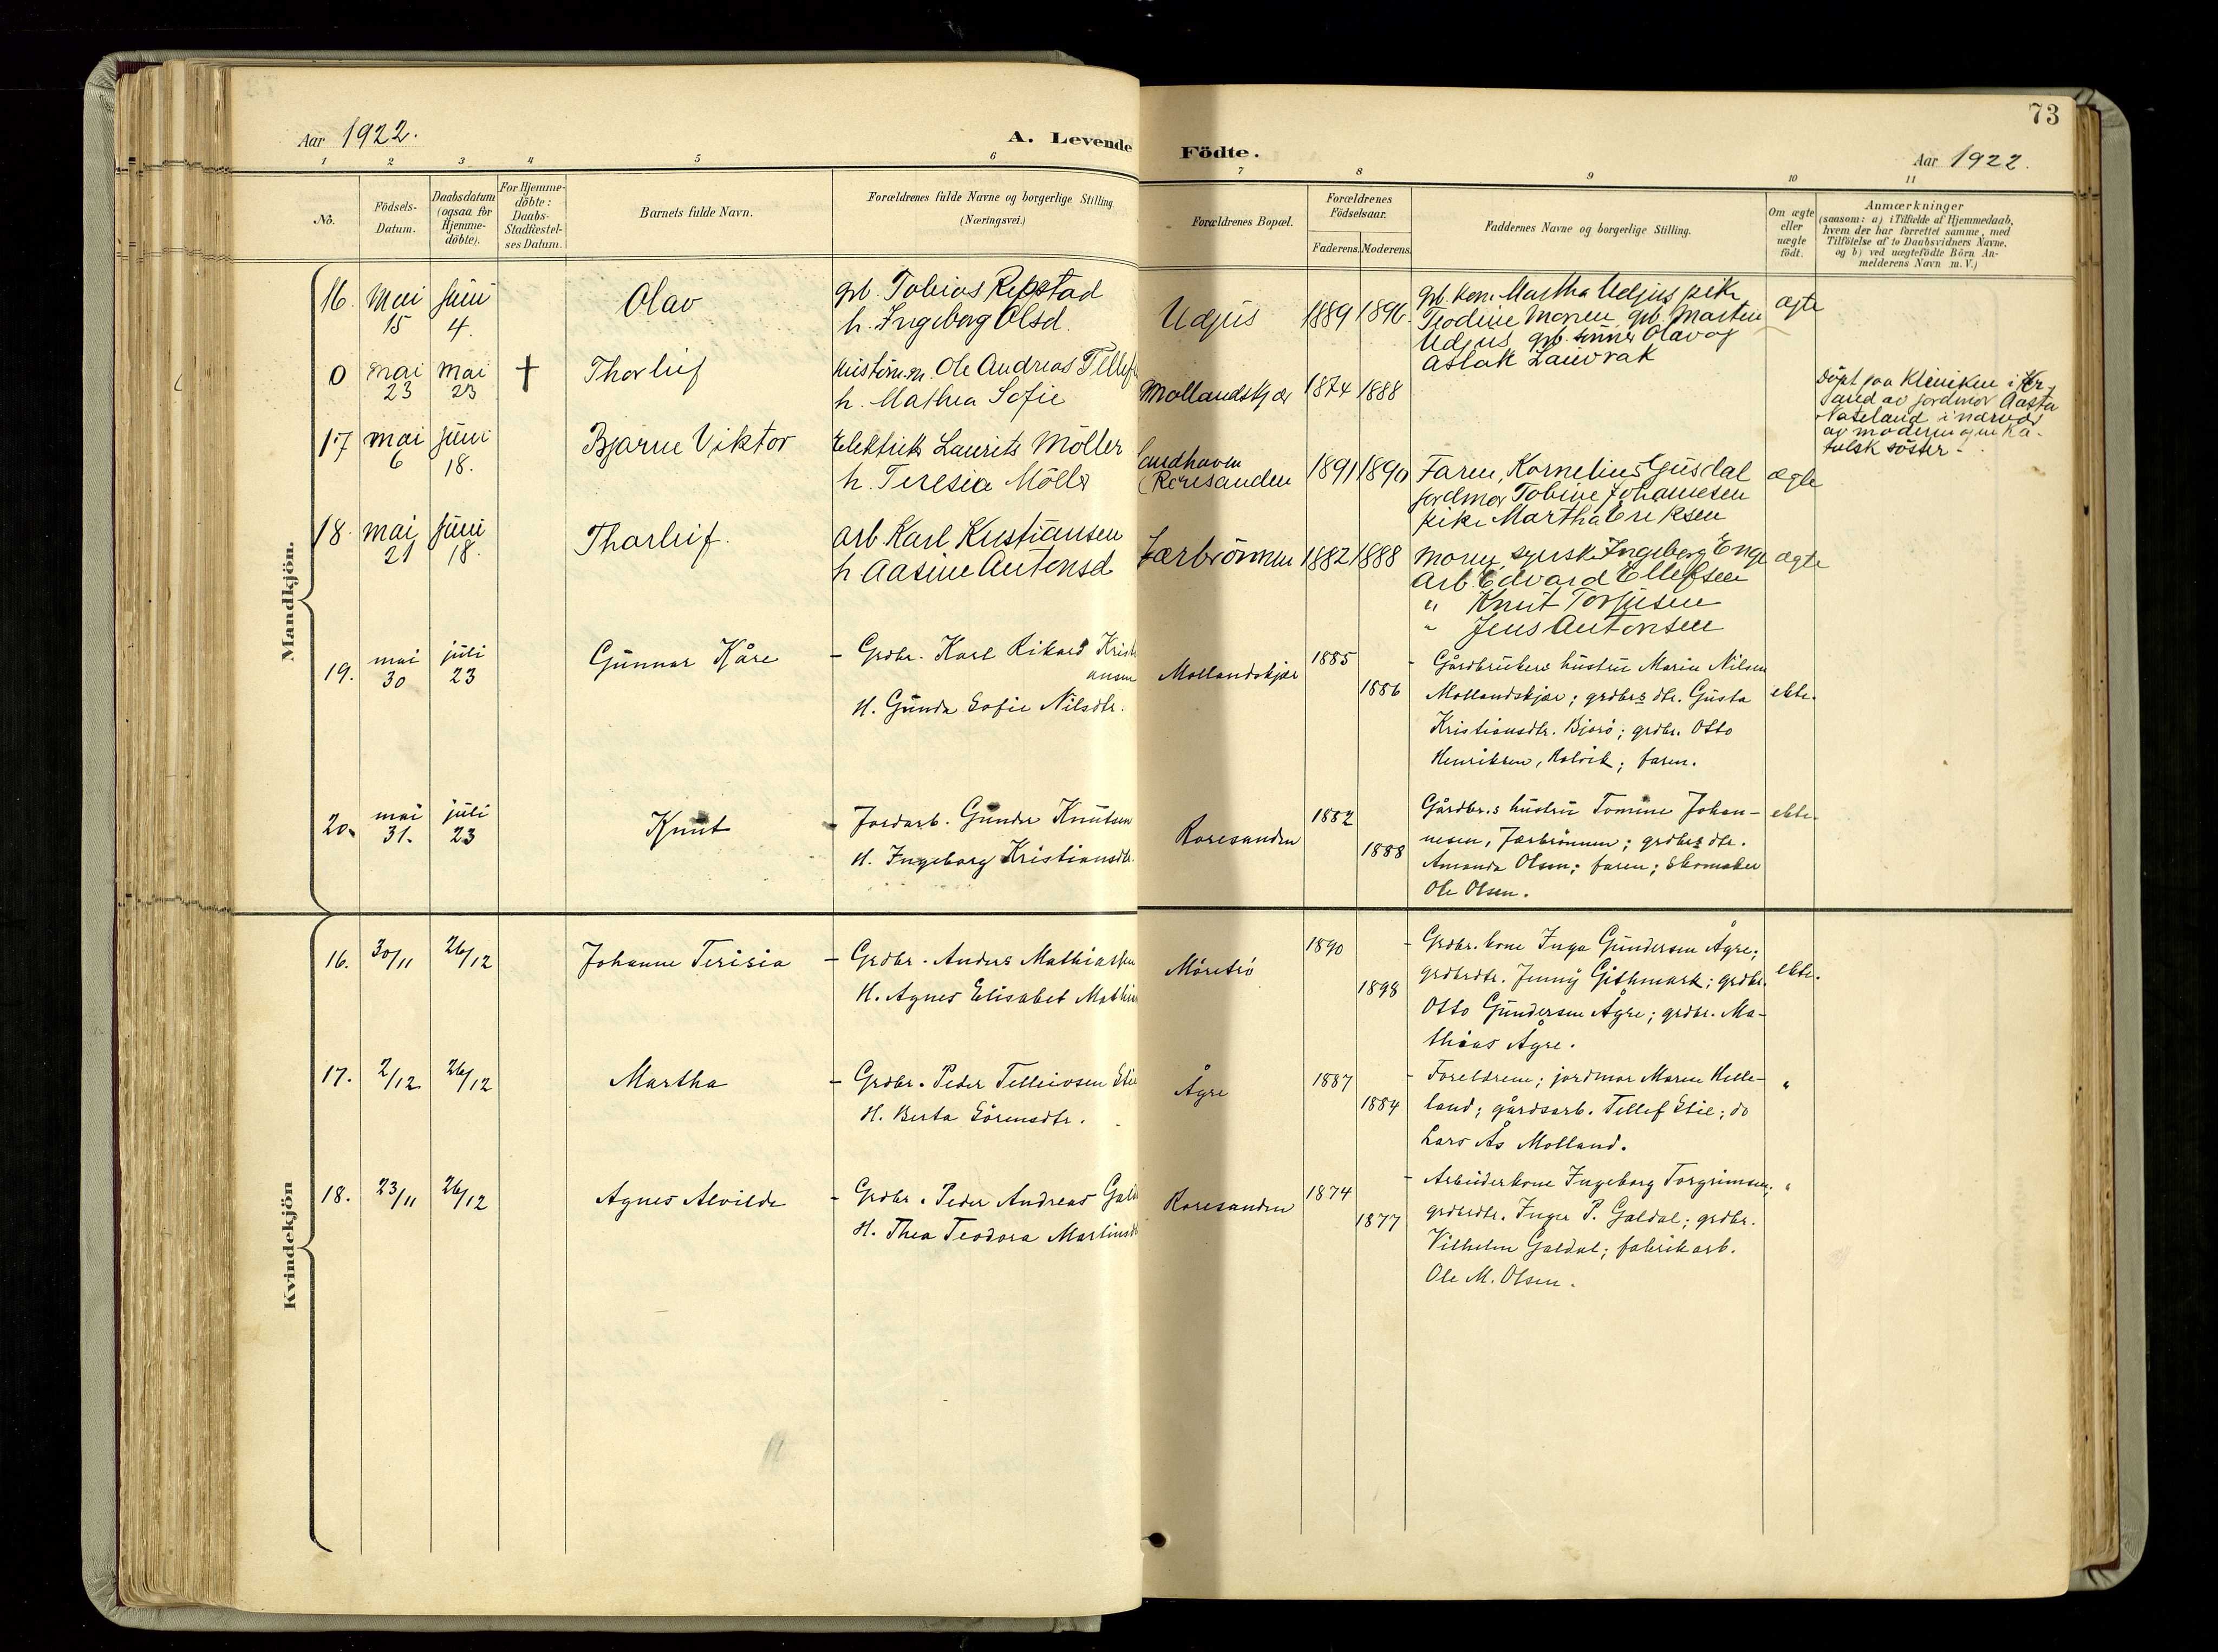 73
Aar 1922.
A. Levende
Födte.
Aar 1922.
1 2 3 4 5 6 7 8 9 10 11
No.
Födsels-
Datum.
Daabsdatum
(ogsaa for
Hjemme-
döbte).
For Hjemme-
döbte:
Daabs-
Stadfæstel-
ses Datum.
Barnets fulde Navn.
Forældrenes fulde Navne og borgerlige Stilling.
(Næringsvei.)
Forældrenes Bopæl.
Forældrenes
Födselsaar.
Faderens. Moderens.
Faddernes Navne og borgerlige Stilling.
Om ægte
eller
uægte
födt.
Anmærkninger
(saasom: a) i Tilfælde af Hjemmedaab,
hvem der har forrettet samme, med
Tilföielse af to Daabsvidners Navne,
og b) ved uægtefödte Börn An-
melderens Navn m. V.)
Mandkjön.
16. Mai 15 Juni 4. Olav
gb. Tobias Repstad
h. Ingeborg Olsd.
Udjus 1889 1896
gb. kone Martha Udjus pike
Teodine Monen gb. Marten
Udjus gb. sönner Olav og
Aslak Lauvrak
ægte
0 mai 23 mai 23 † Thorleif
Ole Andreas Tellef
h. Mathea Sofie
Mollandskjær 1874 1888
Döpt paa Kliniken i Kr.
sand av jordmor Aasta
Nateland i nærvær
av moderen og en ka-
tolsk söster
17 mai 6 juni 18. Bjarne Viktor
Elektrik Laurits Möller
h. Teresia Möller
Sandhaven
(Roresanden 1891 1890
Faren, Kornelius Gusdal
jordmor Tobine Johannesen
pike Martha Eriksen
ægte
18. mai 21 juni 18. Thorleif.
arb Karl Kristiansen
h Aasine Antonsd
Jærbrönnen 1882 1888
Moren, syerske Ingeborg Enge
Arb. Edvard Ellefsen
" Knut Torjusen
" Jens Antonsen
ægte
19. mai 30 juli 23 Gunnar Kåre
- Grdbr. Karl Rikard Kristi
ansen
H. Gunda Sofie Nilsdtr.
Mollandskjær 1885 1886
- Gårdbrukers hustru Marie Nilsen
Mollandskjær; grdbrs dtr. Gusta
Kristiansdtr. Bjorö; grdbr. Otto
Henriksen, Kalvik; faren.
ekte.
20. mai 31. juli 23 Knut
- Jordarb. Gunder Knutsen
H. Ingeborg Kristiansdtr.
Roresanden 1882 1888
Gårdbr.s hustru Tomine Johan-
nesen, Jærbrönnen; grdbrs dtr.
Amanda Olsen; faren; Skomaker
Ole Olsen.
ekte.
Kvindekjön
16. 30/11 26/12 Johanne Terisia
- Grdbr. Anders Mathiassen
H. Agnes Elisabet Mathia
Möretrö 1890 1898
- Grdbr. kone Inga Gundersen Ågre;
grdbrdtr. Jenny Githmark; grdbr.
Otto Gundersen Ågre; grdbr. Ma-
thias Ågre.
ekte.
17. 2/12 26/12 Martha
- Grdbr. Peder Telleivsen Stie
H. Berta Sörensdtr.
Ågre 1887 1884
- Foreldrene; jordmor Maren Helle-
land; gårdsarb. Tellef Stie; do
Lars Ås Molland.
"
18. 23/11 26/12 Agnes Alvilde
- Grdbr. Peder Andreas Gald
H. Thea Teodora Martinsd
Roresanden 1874 1877
- Arbeiderkone Ingeborg Torgrimsen;
grdbrdtr. Inger P. Galdal; grdbr.
Vilhelm Galdal; fabrikarb.
Ole M. Olsen.
"